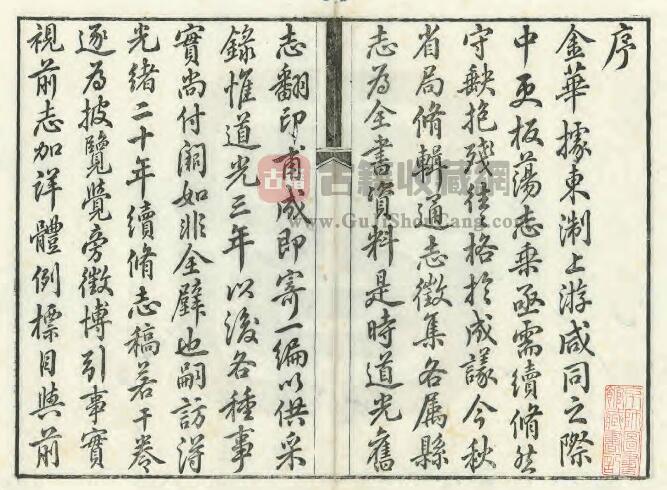 序
金華據東淛上游咸同之際
中更板蕩志乘亟需續脩然
守缺抱殘往格於成議今秋
省局脩輯通志徵集各属縣
志為全書資料是時道光舊
志翻印甫成即寄一編以供采
錄惟道光三年以後各種事
實尚付闕如非全璧也嗣訪得
光緒二十年續脩志稿若干卷
逐為披覽覺旁徵博引事實
視前志加詳體例標目與前
古籍收藏網
www.GujiShouCang.com